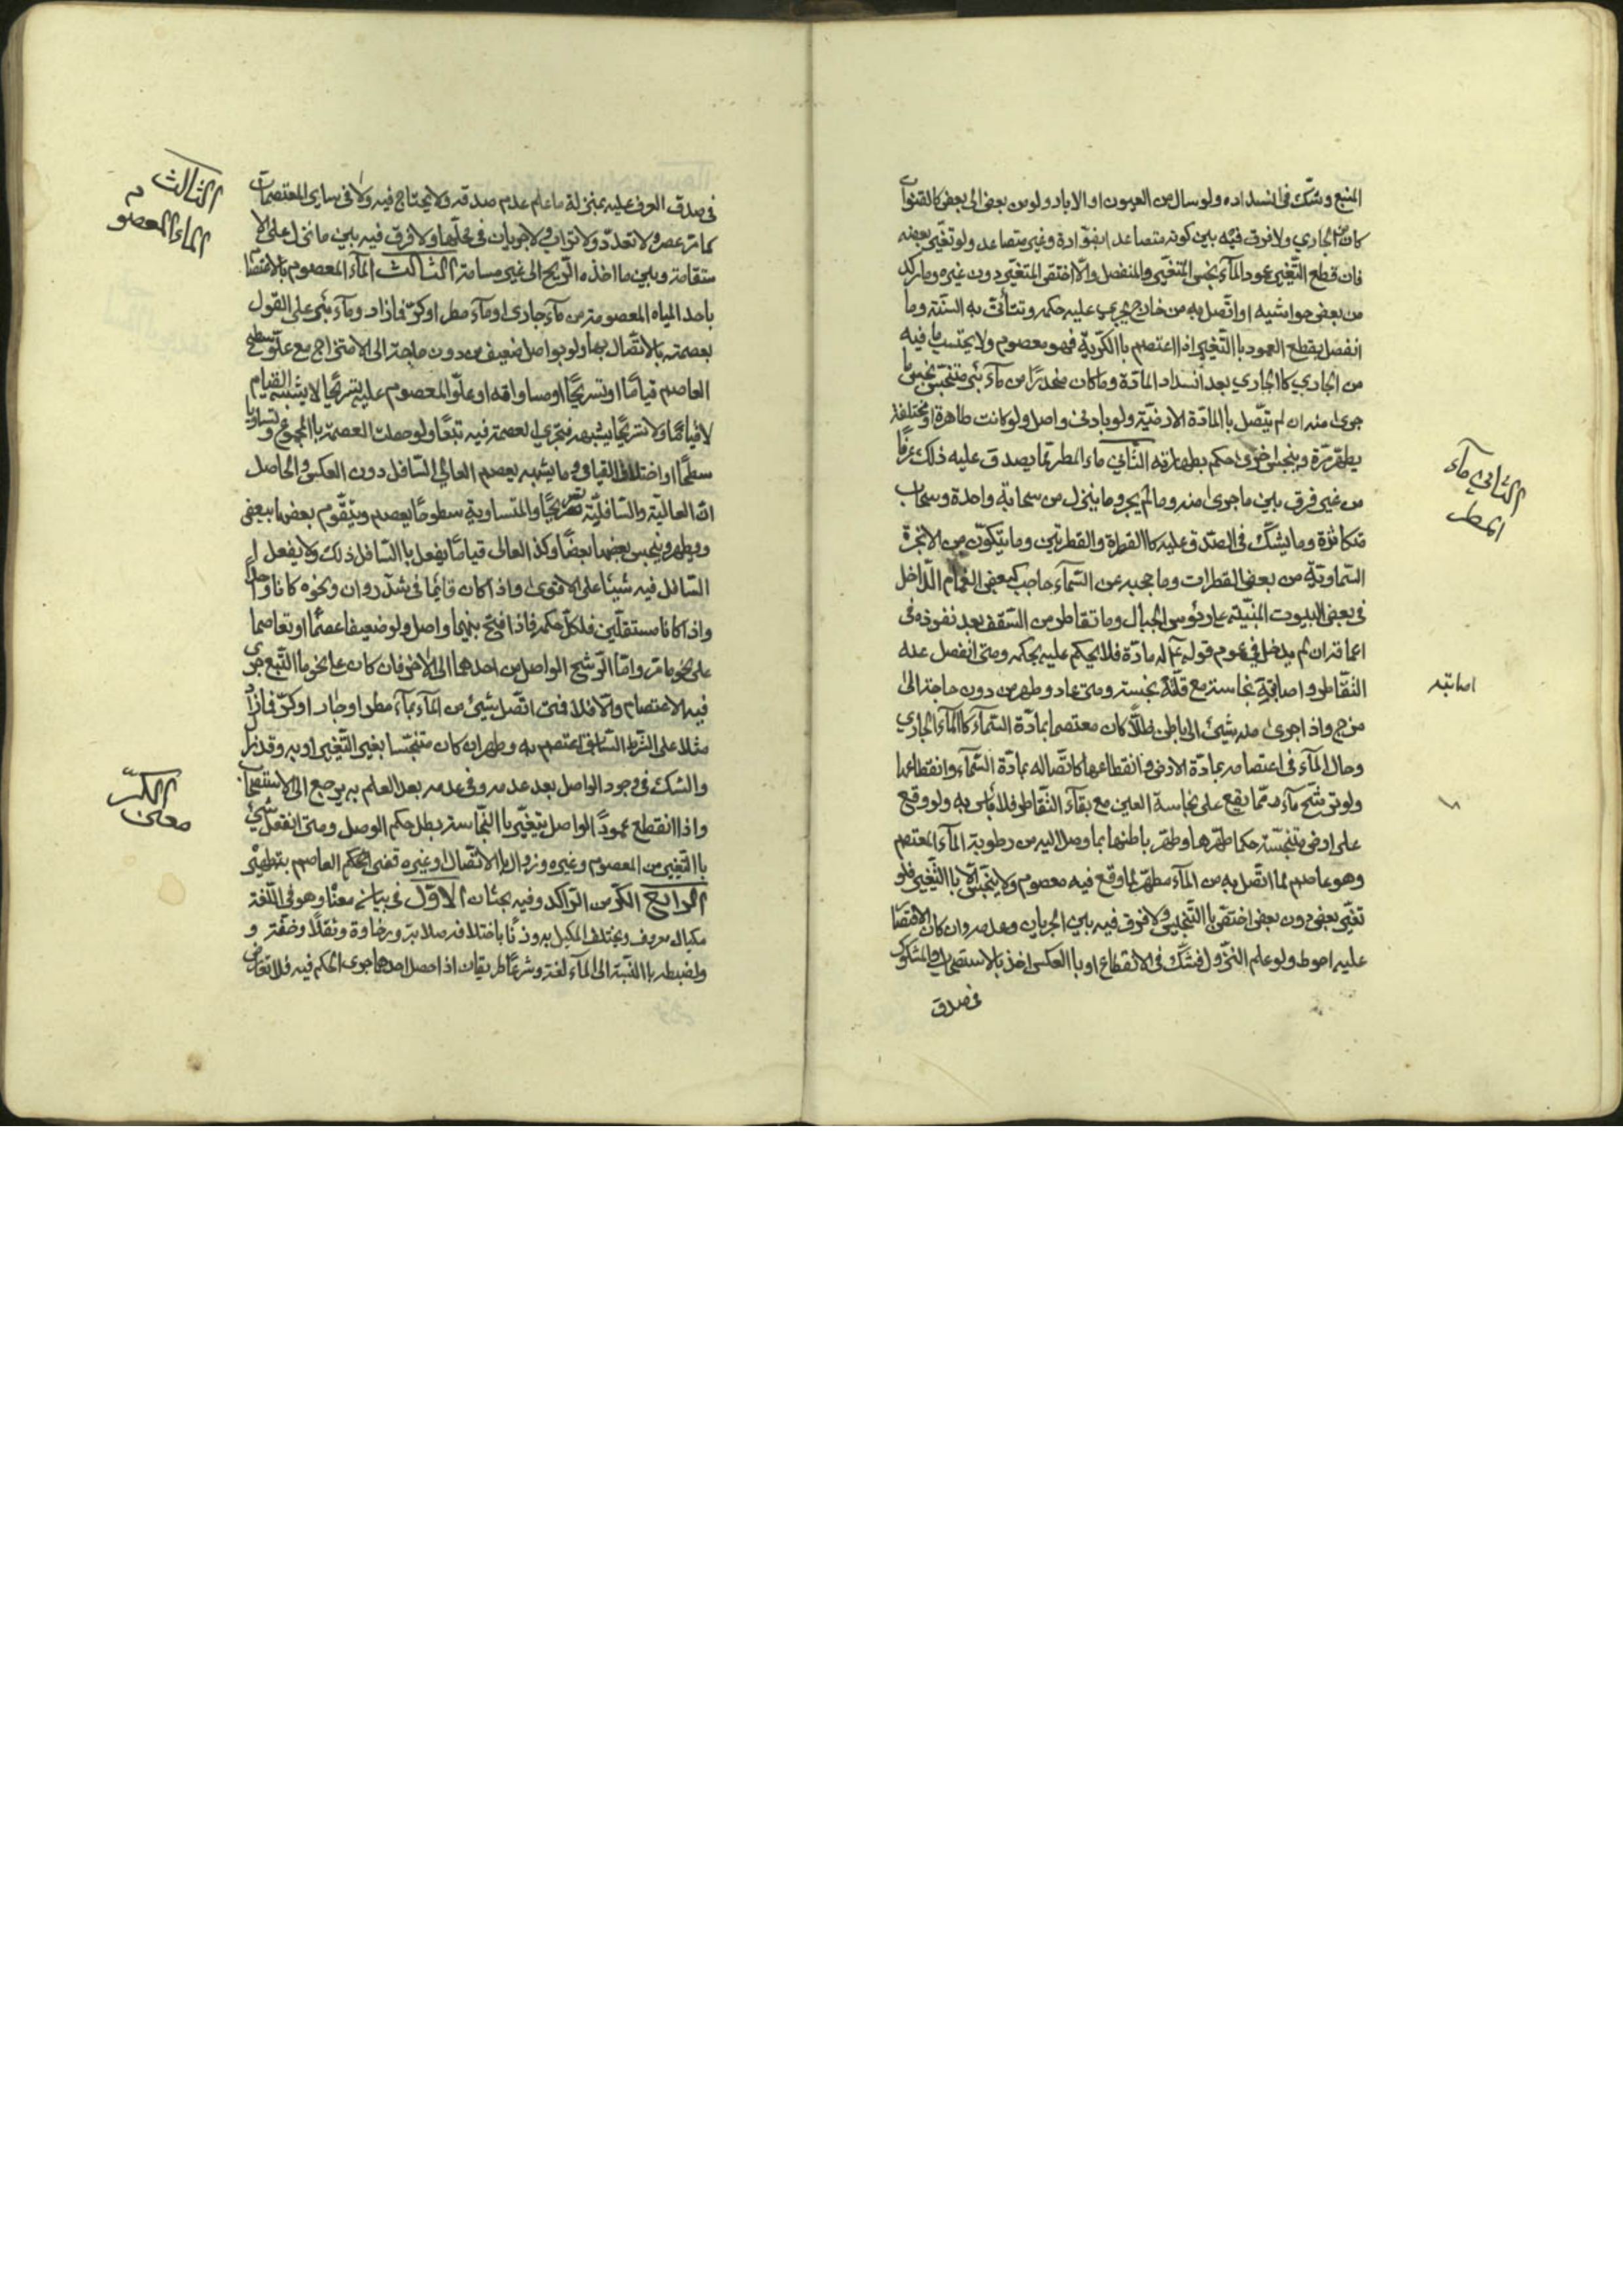 المنبع وشكّ في انسداده ولو سال من العيون او الابار ولو من بعض الى بعض كالقنوات
كان من الجاري ولا فرق فيه بين كونه متصاعدا بفوّارة وغير متصاعد ولو تغيّر بعضه
فان قطع التّغيير عمود المآء نجس المتغيّر والمنفصل والّا اختصّ المتغيّر دون غيره وما ركد
من بعض حواشيه او اتّصل به من خارج يجري عليه حكمه وتتأتّى به السنّة وما
انفصل بقطع العمود باالتّغيير اذا اعتصم باالكريّة فهو معصوم ولا يحتسب ما فيه
من الجاري كاالجاري بعد انسداد المادّة وما كان منحدرًا من مآء بئر متنجّس نجس ما
جرى منه ان لم يتّصل باالمادّة الارضيّة ولو بادنى واصل ولو كانت طاهرة او مختلفة
يطهر مرّة وينجس اخرى حكم بطهارته الثّاني ماء المطر ممّا يصدق عليه ذلك عرفًا
من غير فرق بين ما جرى منه وما لم يجر وما ينزل من سحابة واحدة وسحاب
متكاثرة وما يشكّ في الصّدق عليه كاالقطرة والقطرتين وما يتكوّن من الابخرة
السّماويّة من بعض القطرات وما حجبه عن السّمآء حاجب كبعض الغمام الدّاخل
في بعض البيوت المبنيّة على رئوس الجبال وما تقاطر من السّقف بعد نفوذه في
اعماقه ان لم يدخل في عموم قوله ع له مادّة فلا يحكم عليه بحكمه ومتى انفصل عنه
التّقاطر واصابته نجاسة مع قلّته نجسته ومتى عاد وطهر من دون حاجة الى
مزج واذا جرى منه شيئ الى الباطن ظلّا كان معتصما بمادّة السّمآء كاالمآء الجاري
وحال المآء في اعتصامه بمادّة الارض وانقطاعها كاتّصاله بمادّة السّمآء وانقطاعها
ولو ترشّح مآء ممّا يقع على نجاسة العين مع بقآء التّقاطر فلا بأس به ولو وقع
على ارض متنجّسة حكما طهّرها وطهّر باطنها بما وصل اليه من رطوبة المآء المعتصم
وهو عاصم لما اتّصل به من المآء مطهّر لما وقع فيه معصوم ولا ينجّس الّا باالتّغيير فلو
تغيّر بعض دون بعض اختصّ باالتّنجيس ولا فرق فيه بين الجريان وعدمه وان كان الاقتصا
عليه احوط ولو علم النّزول فشكّ في الانقطاع او باالعكس اخذ بالاستصحاب والمشكوك
في صدق
الثاني مآء
المطر
اصابته
في صدق العرف عليه بمنزلة ما علم عدم صدقه ولا يحتاج فيه ولا في ساير المعتصمات
كما مرّ عصر ولا تعدّد ولا تراب ولا جريان في محلّها ولا فرق فيه بين ما نزل على الا
ستقامة وبين ما اخذه الرّيح الى غير مسامتة الثالث المآء المعصوم بالاعتصا
باحد المياه المعصومة من مآء جاري او مآء مطر او كرّ فما زاد ومآء بئر على القول
بعصمته بالاتّصال بها ولو بواصل ضعيف من دون حاجة الى الامتزاج مع علوّ سطح
العاصم قيامًا او تسريحًا او مساواته او علوّ المعصوم عليه تسريحًا لا يشبه القيام
لا قيامًا ولا تسريحًا يشبهه فتجري العصمة فيه تبعًا ولو حصلت العصمة باالمجموع وتساويا
سطحًا او اختلفا لا القيامي وما يشبهه يعصم العالي السّافل دون العكس والحاصل
انّ العالية والسّافليّة تسريحًا والمتساوية سطوحًا يعصم ويتقوّم بعضها ببعض
ويطهر وينجس بعضها بعضًا وكذا العالى قيامًا يفعل باالسّافل ذلك ولا يفعل ا
السّافل فيه شيئا على الاقوى واذا كان قائما في شذروان ونحوه كانا واحدًا
واذا كانا مستقلّين فلكلّ حكمه فاذا فتح بينهما واصل ولو ضعيفا عصما او تعاصما
على نحو ما مرّ وامّا الرّشح الواصل من احدهما الى الاخر فان كان على نحو ما النّبع جرى
فيه الاعتصام والّا فلا فمتى اتّصل شيئ من المآء بمآء مطر او جار او كرّ فما زاد
مثلا على الشّرط السّابق اعتصم به وطهر ان كان متنجّسا بغير التّغيير او به وقد زال
والشكّ في وجود الواصل بعد عدمه وفي عدمه بعد العلم به يرجع الى الاستصحاب
واذا انقطع عمود الواصل بتغيّر باالنّجاسة بطل حكم الوصل ومتى انفعل شيئ
باالتّغيير من المعصوم وغيره وزوال باالاتّصال او غيره قضى الحكم العاصم بتطهيره
الرابع الكرّ من الرّاكد وفيه بحثان الاوّل في بيان معناه وهو في اللّغة
مكيال معروف ويختلف المكيل به وزنًا باختلافه صلابة ورخاوة وثقلًا وخفّة و
ولضبطه باالنّسبة الى المآء لغة وشرعًا طريقان اذا حصل احدهما جرى الحكم فيه فلا تعارض
الثالث
الماء المعصو
م
الكرّ
معنى